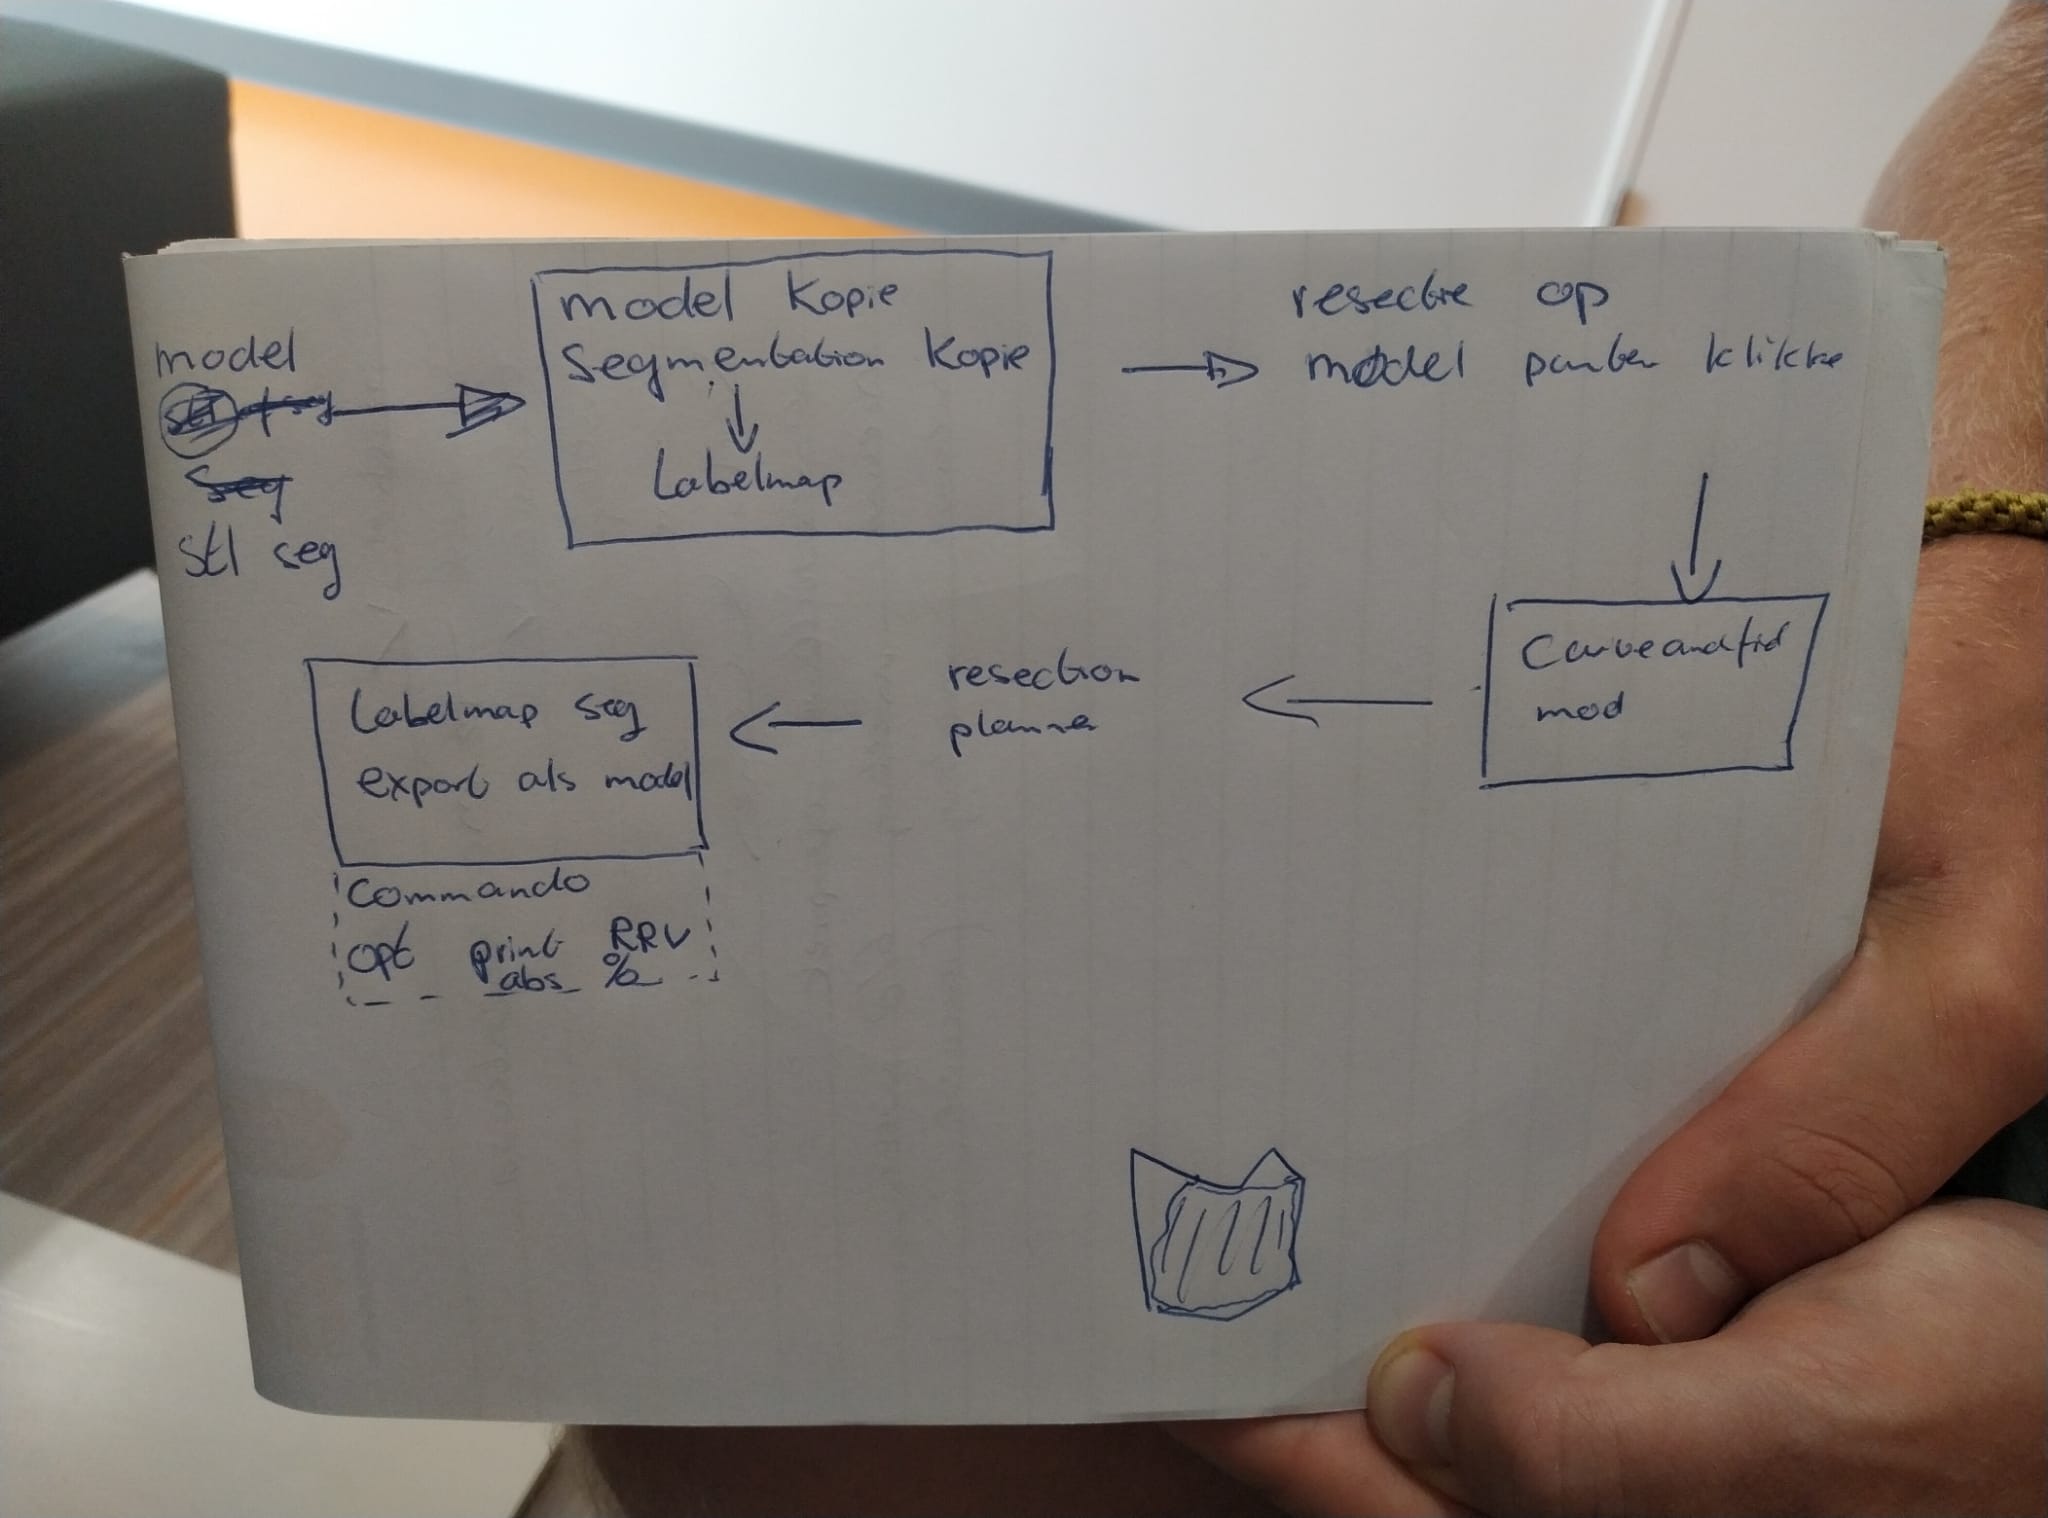 model
Stl seg
model Kopie
Segmentation Kopie
Labelmap
resectie op
model punten klikke
Curveandfid
mod
resection
planner
Labelmap seg
export als model
Commando
opt print RRV
abs %